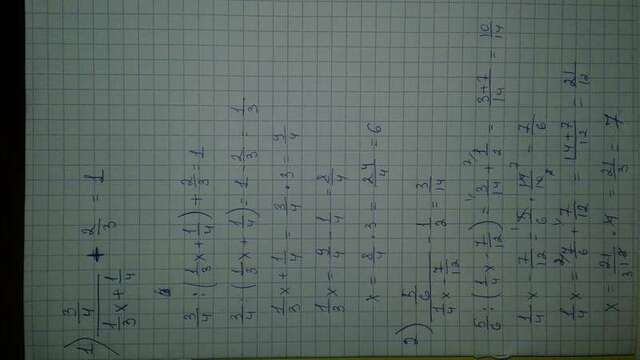 1) (3/4)/(1/3x + 1/4) + 2/3 = 1
3/4 : (1/3x + 1/4) + 2/3 = 1
3/4 : (1/3x + 1/4) = 1 - 2/3 = 1/3
1/3x + 1/4 = 3/4 · 3 = 9/4
1/3x = 9/4 - 1/4 = 8/4
x = 8/4 · 3 = 24/4 = 6
2) (5/6)/(1/4x - 7/12) - 1/2 = 3/14
5/6 : (1/4x - 7/12) = 3/14 + 1/2 = (3+7)/14 = 10/14
1/4x - 7/12 = 5/6 · 14/10 = 7/6
1/4x = 7/6 + 7/12 = (14+7)/12 = 21/12
x = 21/12 · 4 = 21/3 = 7